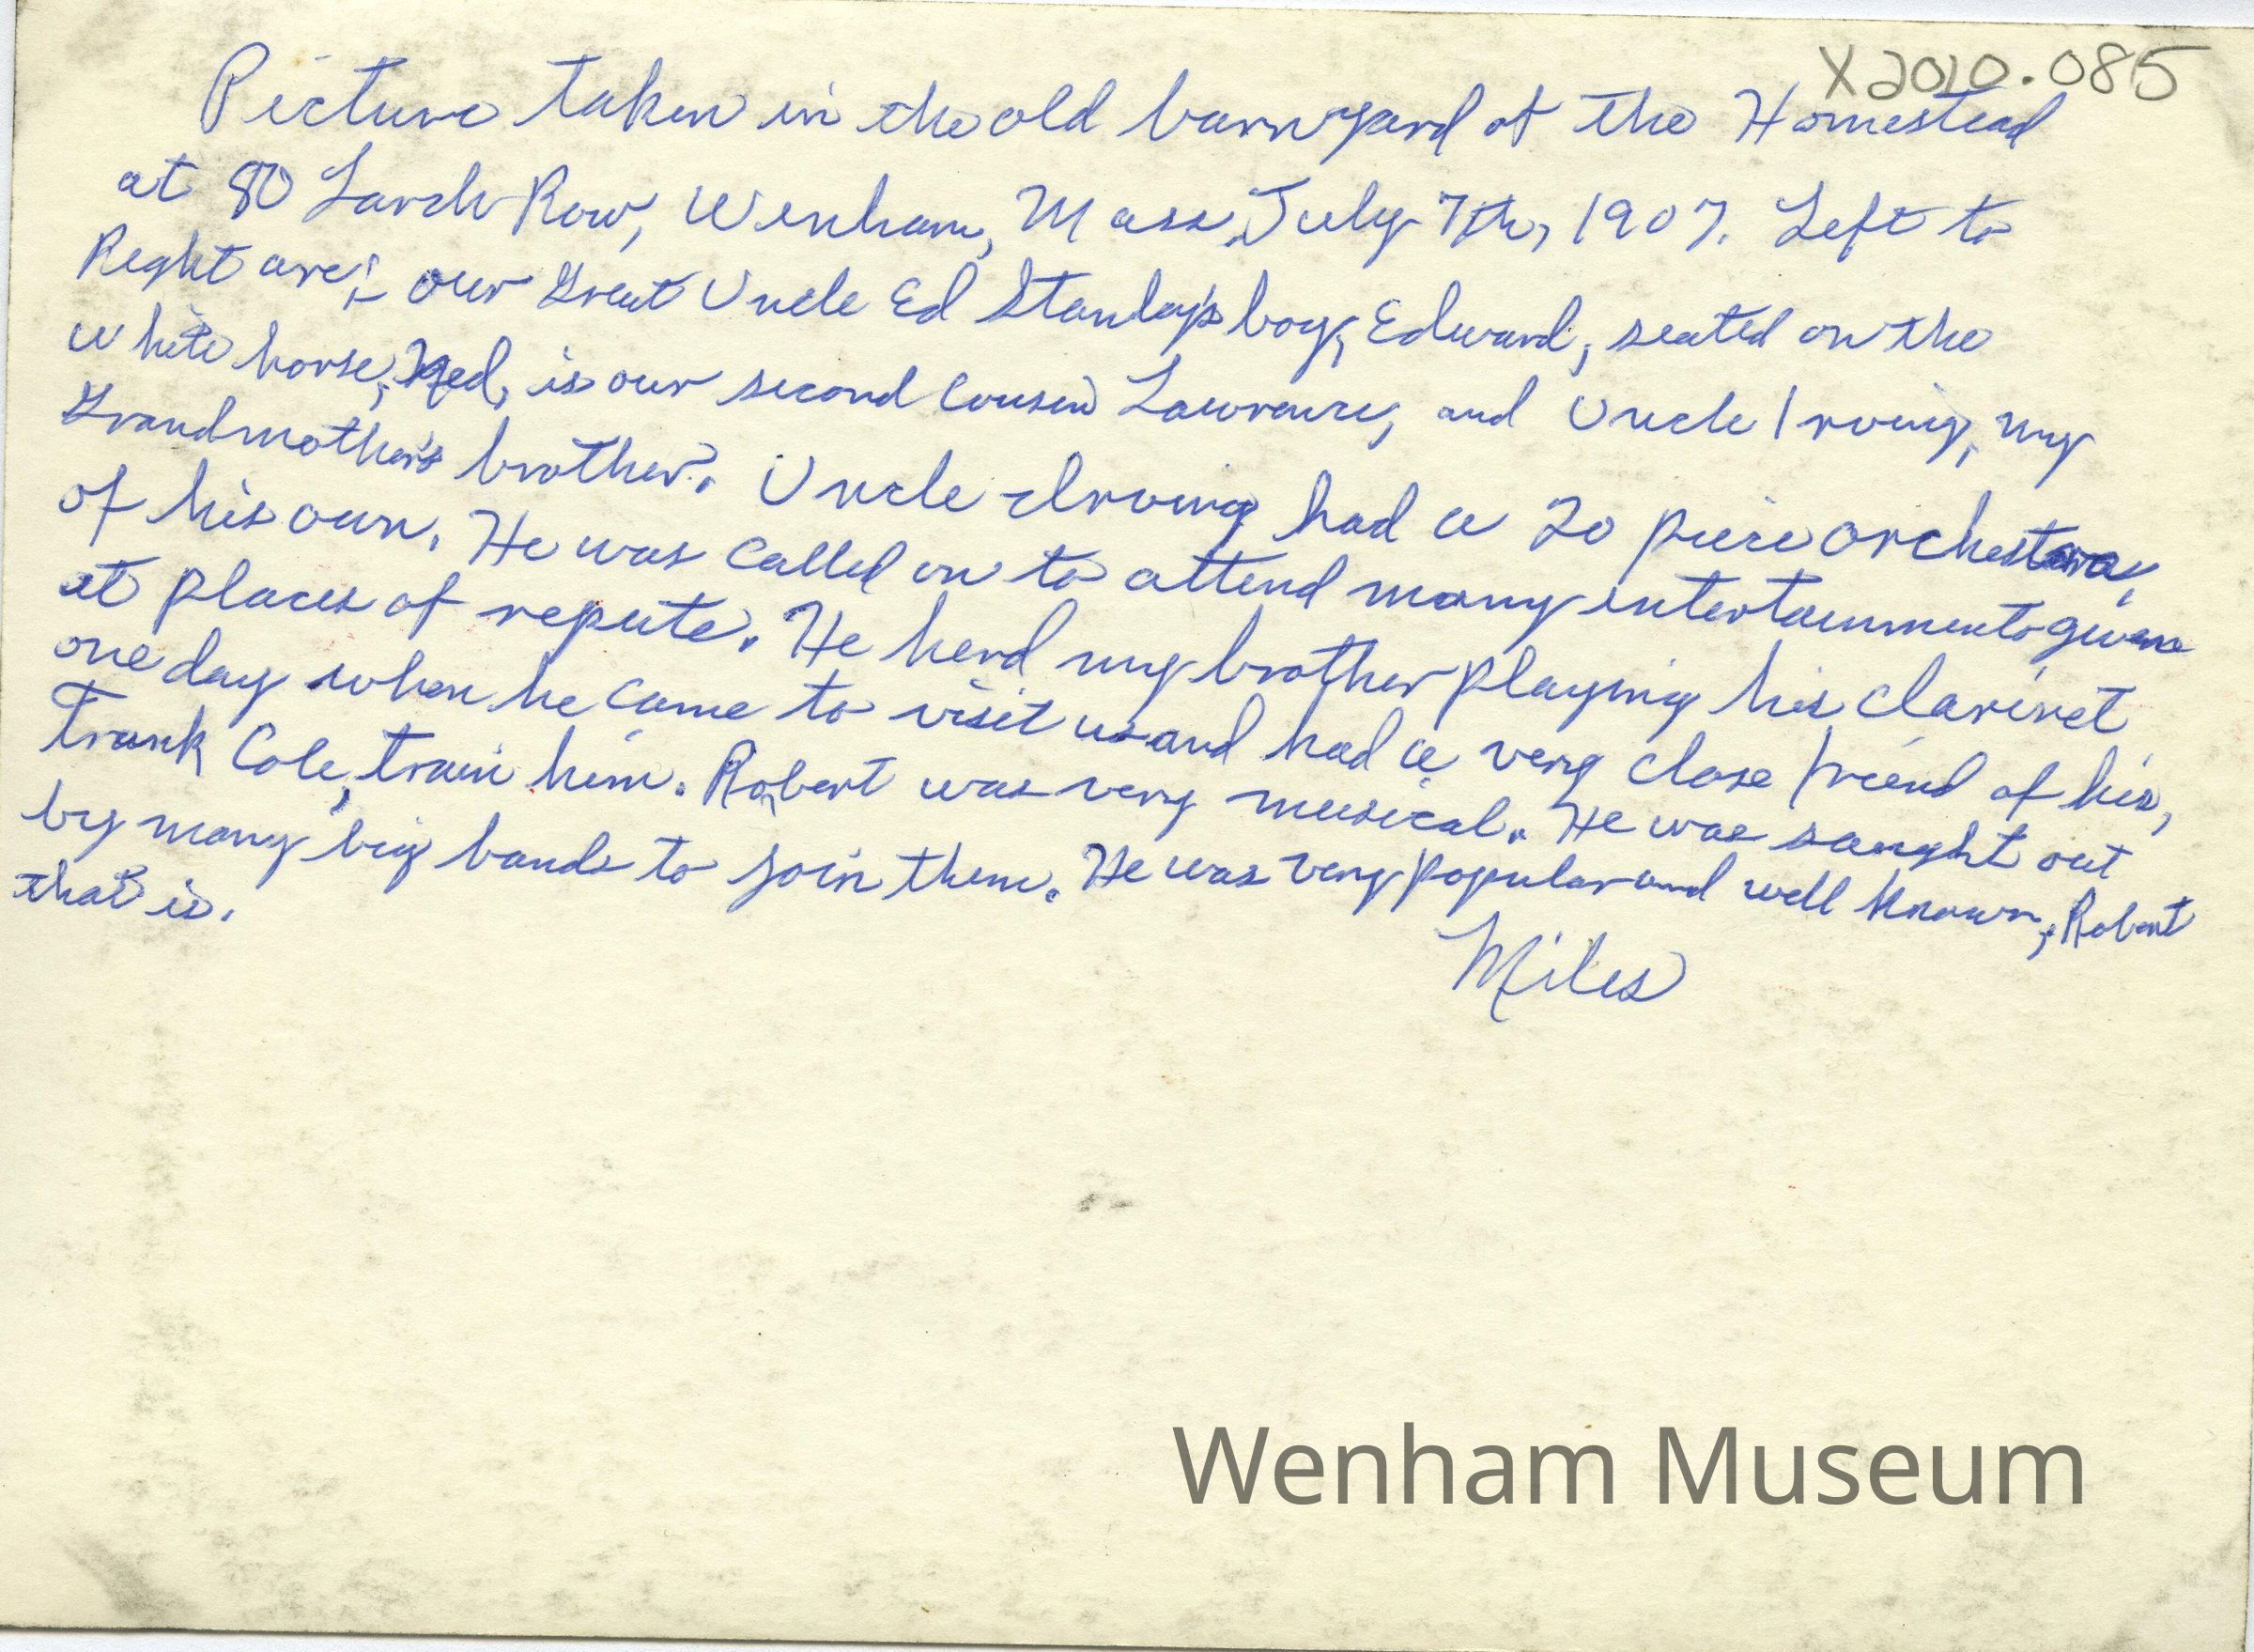 X2010.085
Picture taken in the old barnyard at the Homestead
at 80 Larch Row, Wenham, Mass, July 7th, 1907. Left to
Right are; our Great Uncle Ed Stanley's boy, Edward, seated on the
white horse, Ned, is our second Cousin Lawrence, and Uncle Irving, my
Grandmother's brother. Uncle Irving had a 20 piece orchestra,
of his own. He was called on to attend many entertainments given
at places of repute. He herd my brother playing his clarinet
one day when he came to visit us and had a very close friend of his,
Frank Cole, train him. Robert was very musical. He was saught out
by many big bands to join them. He was very popular and well known, Robert
that is.
Miles
Wenham Museum